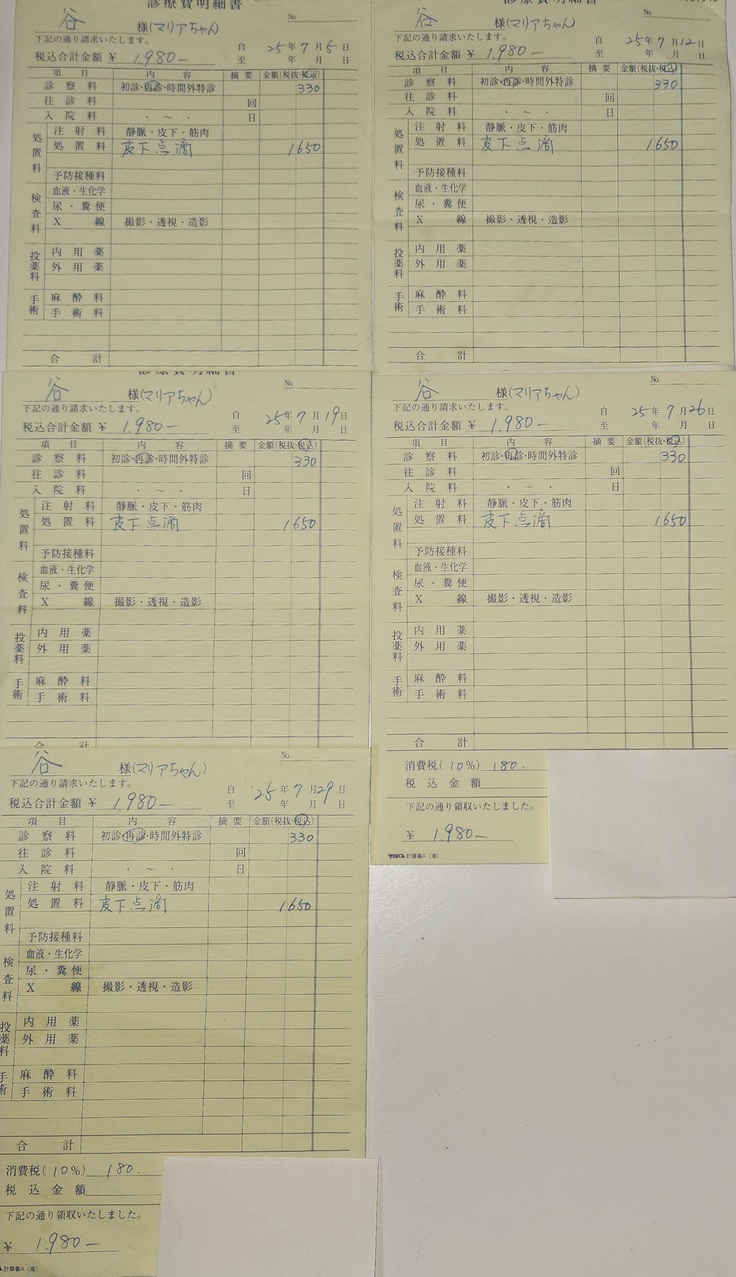 診療費明細書
谷 様(マリアちゃん) No.
下記の通り請求いたします。
税込合計金額 ¥ 1,980-
自 25年7月5日
至 年 月 日
項 目 内 容 摘 要 金額(税抜・税込)
診 察 料 初診・再診・時間外特診 330
往 診 料 回
入 院 料 ・ ~ ・ 日
処置料 注 射 料 静脈・皮下・筋肉
処 置 料 皮下点滴 1650
予防接種料
検査料 血液・生化学
尿・糞便
X 線 撮影・透視・造影
投薬料 内 用 薬
外 用 薬
手術 麻 酔 料
手 術 料
合 計
診療費明細書
谷 様(マリアちゃん) No.
下記の通り請求いたします。
税込合計金額 ¥ 1,980-
自 25年7月12日
至 年 月 日
項 目 内 容 摘 要 金額(税抜・税込)
診 察 料 初診・再診・時間外特診 330
往 診 料 回
入 院 料 ・ ~ ・ 日
処置料 注 射 料 静脈・皮下・筋肉
処 置 料 皮下点滴 1650
予防接種料
検査料 血液・生化学
尿・糞便
X 線 撮影・透視・造影
投薬料 内 用 薬
外 用 薬
手術 麻 酔 料
手 術 料
合 計
診療費明細書
谷 様(マリアちゃん) No.
下記の通り請求いたします。
税込合計金額 ¥ 1,980-
自 25年7月19日
至 年 月 日
項 目 内 容 摘 要 金額(税抜・税込)
診 察 料 初診・再診・時間外特診 330
往 診 料 回
入 院 料 ・ ~ ・ 日
処置料 注 射 料 静脈・皮下・筋肉
処 置 料 皮下点滴 1650
予防接種料
検査料 血液・生化学
尿・糞便
X 線 撮影・透視・造影
投薬料 内 用 薬
外 用 薬
手術 麻 酔 料
手 術 料
合 計
谷 様(マリアちゃん) No.
下記の通り請求いたします。
税込合計金額 ¥ 1,980-
自 25年7月26日
至 年 月 日
項 目 内 容 摘 要 金額(税抜・税込)
診 察 料 初診・再診・時間外特診 330
往 診 料 回
入 院 料 ・ ~ ・ 日
処置料 注 射 料 静脈・皮下・筋肉
処 置 料 皮下点滴 1650
予防接種料
検査料 血液・生化学
尿・糞便
X 線 撮影・透視・造影
投薬料 内 用 薬
外 用 薬
手術 麻 酔 料
手 術 料
合 計
消費税(10%) 180.
税 込 金 額
下記の通り領収いたしました。
¥ 1,980-
谷 様(マリアちゃん) No.
下記の通り請求いたします。
税込合計金額 ¥ 1,980-
自 25年7月29日
至 年 月 日
項 目 内 容 摘 要 金額(税抜・税込)
診 察 料 初診・再診・時間外特診 330
往 診 料 回
入 院 料 ・ ~ ・ 日
処置料 注 射 料 静脈・皮下・筋肉
処 置 料 皮下点滴 1650
予防接種料
検査料 血液・生化学
尿・糞便
X 線 撮影・透視・造影
投薬料 内 用 薬
外 用 薬
手術 麻 酔 料
手 術 料
合 計
消費税(10%) 180.
税 込 金 額
下記の通り領収いたしました。
¥ 1,980-